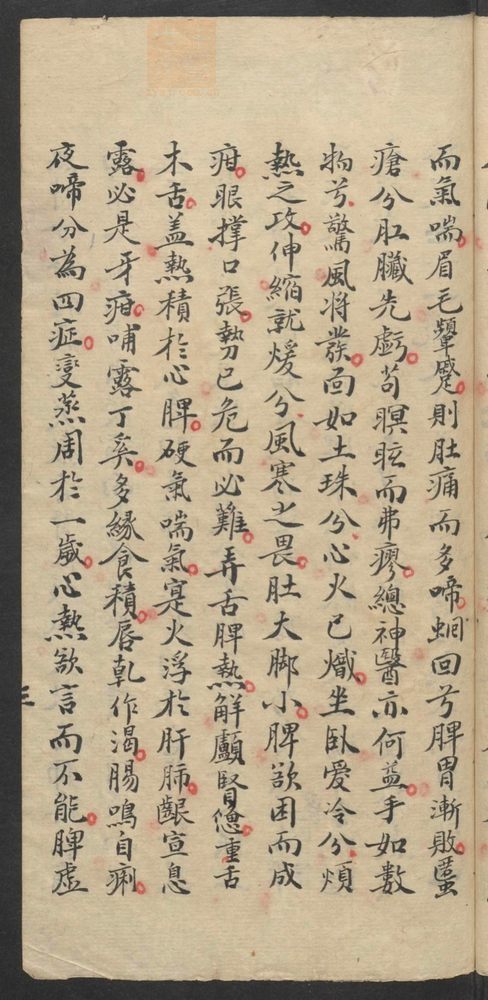 而氣喘眉毛顰蹙則肚痛而多啼蛔回兮脾胃漸敗䘌
瘡兮肛臟先虧苟瞑眩而弗瘳總神醫亦何益手如數
物兮驚風将發面如土珠兮心火已熾坐臥愛冷兮煩
熱之攻伸縮就煖兮風寒之畏肚大脚小脾欲困而成
疳眼撑口張勢已危而必難弄舌脾熱解顱腎憊重舌
木舌盖熱積於心脾硬氣喘氣寔火浮於肝肺齦宣息
露必是牙疳哺露丁奚多緣食積唇乾作渴腸鳴自痢
夜啼分為四症變蒸周於一歲心熱欲言而不能脾虛
三